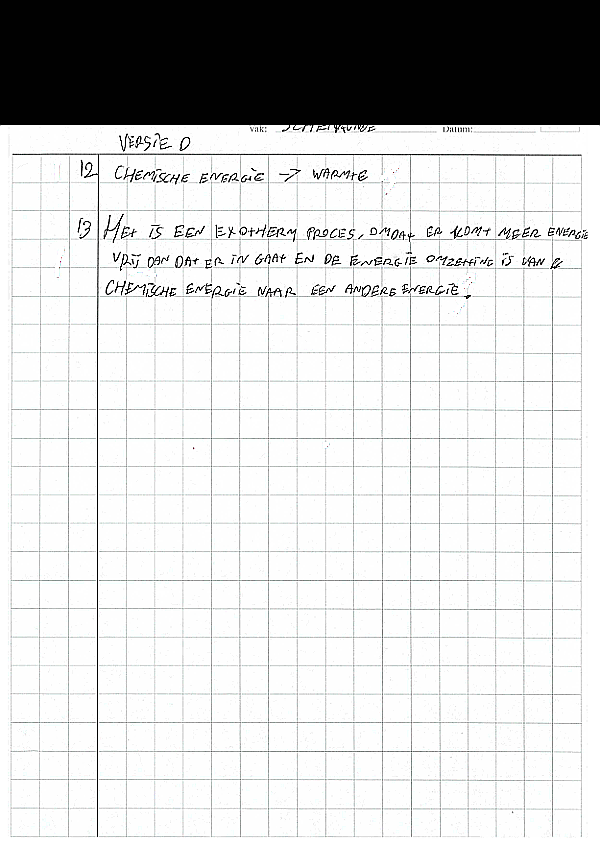 vak: SCHEIKUNDE Datum:
VERSIE D
12 CHEMISCHE ENERGIE → WARMTE
13 HET IS EEN EXOTHERM PROCES, OMDAT ER KOMT MEER ENERGIE
VRIJ DAN DAT ER IN GAAT EN DE ENERGIE OMZETTING IS VAN
CHEMISCHE ENERGIE NAAR EEN ANDERE ENERGIE.